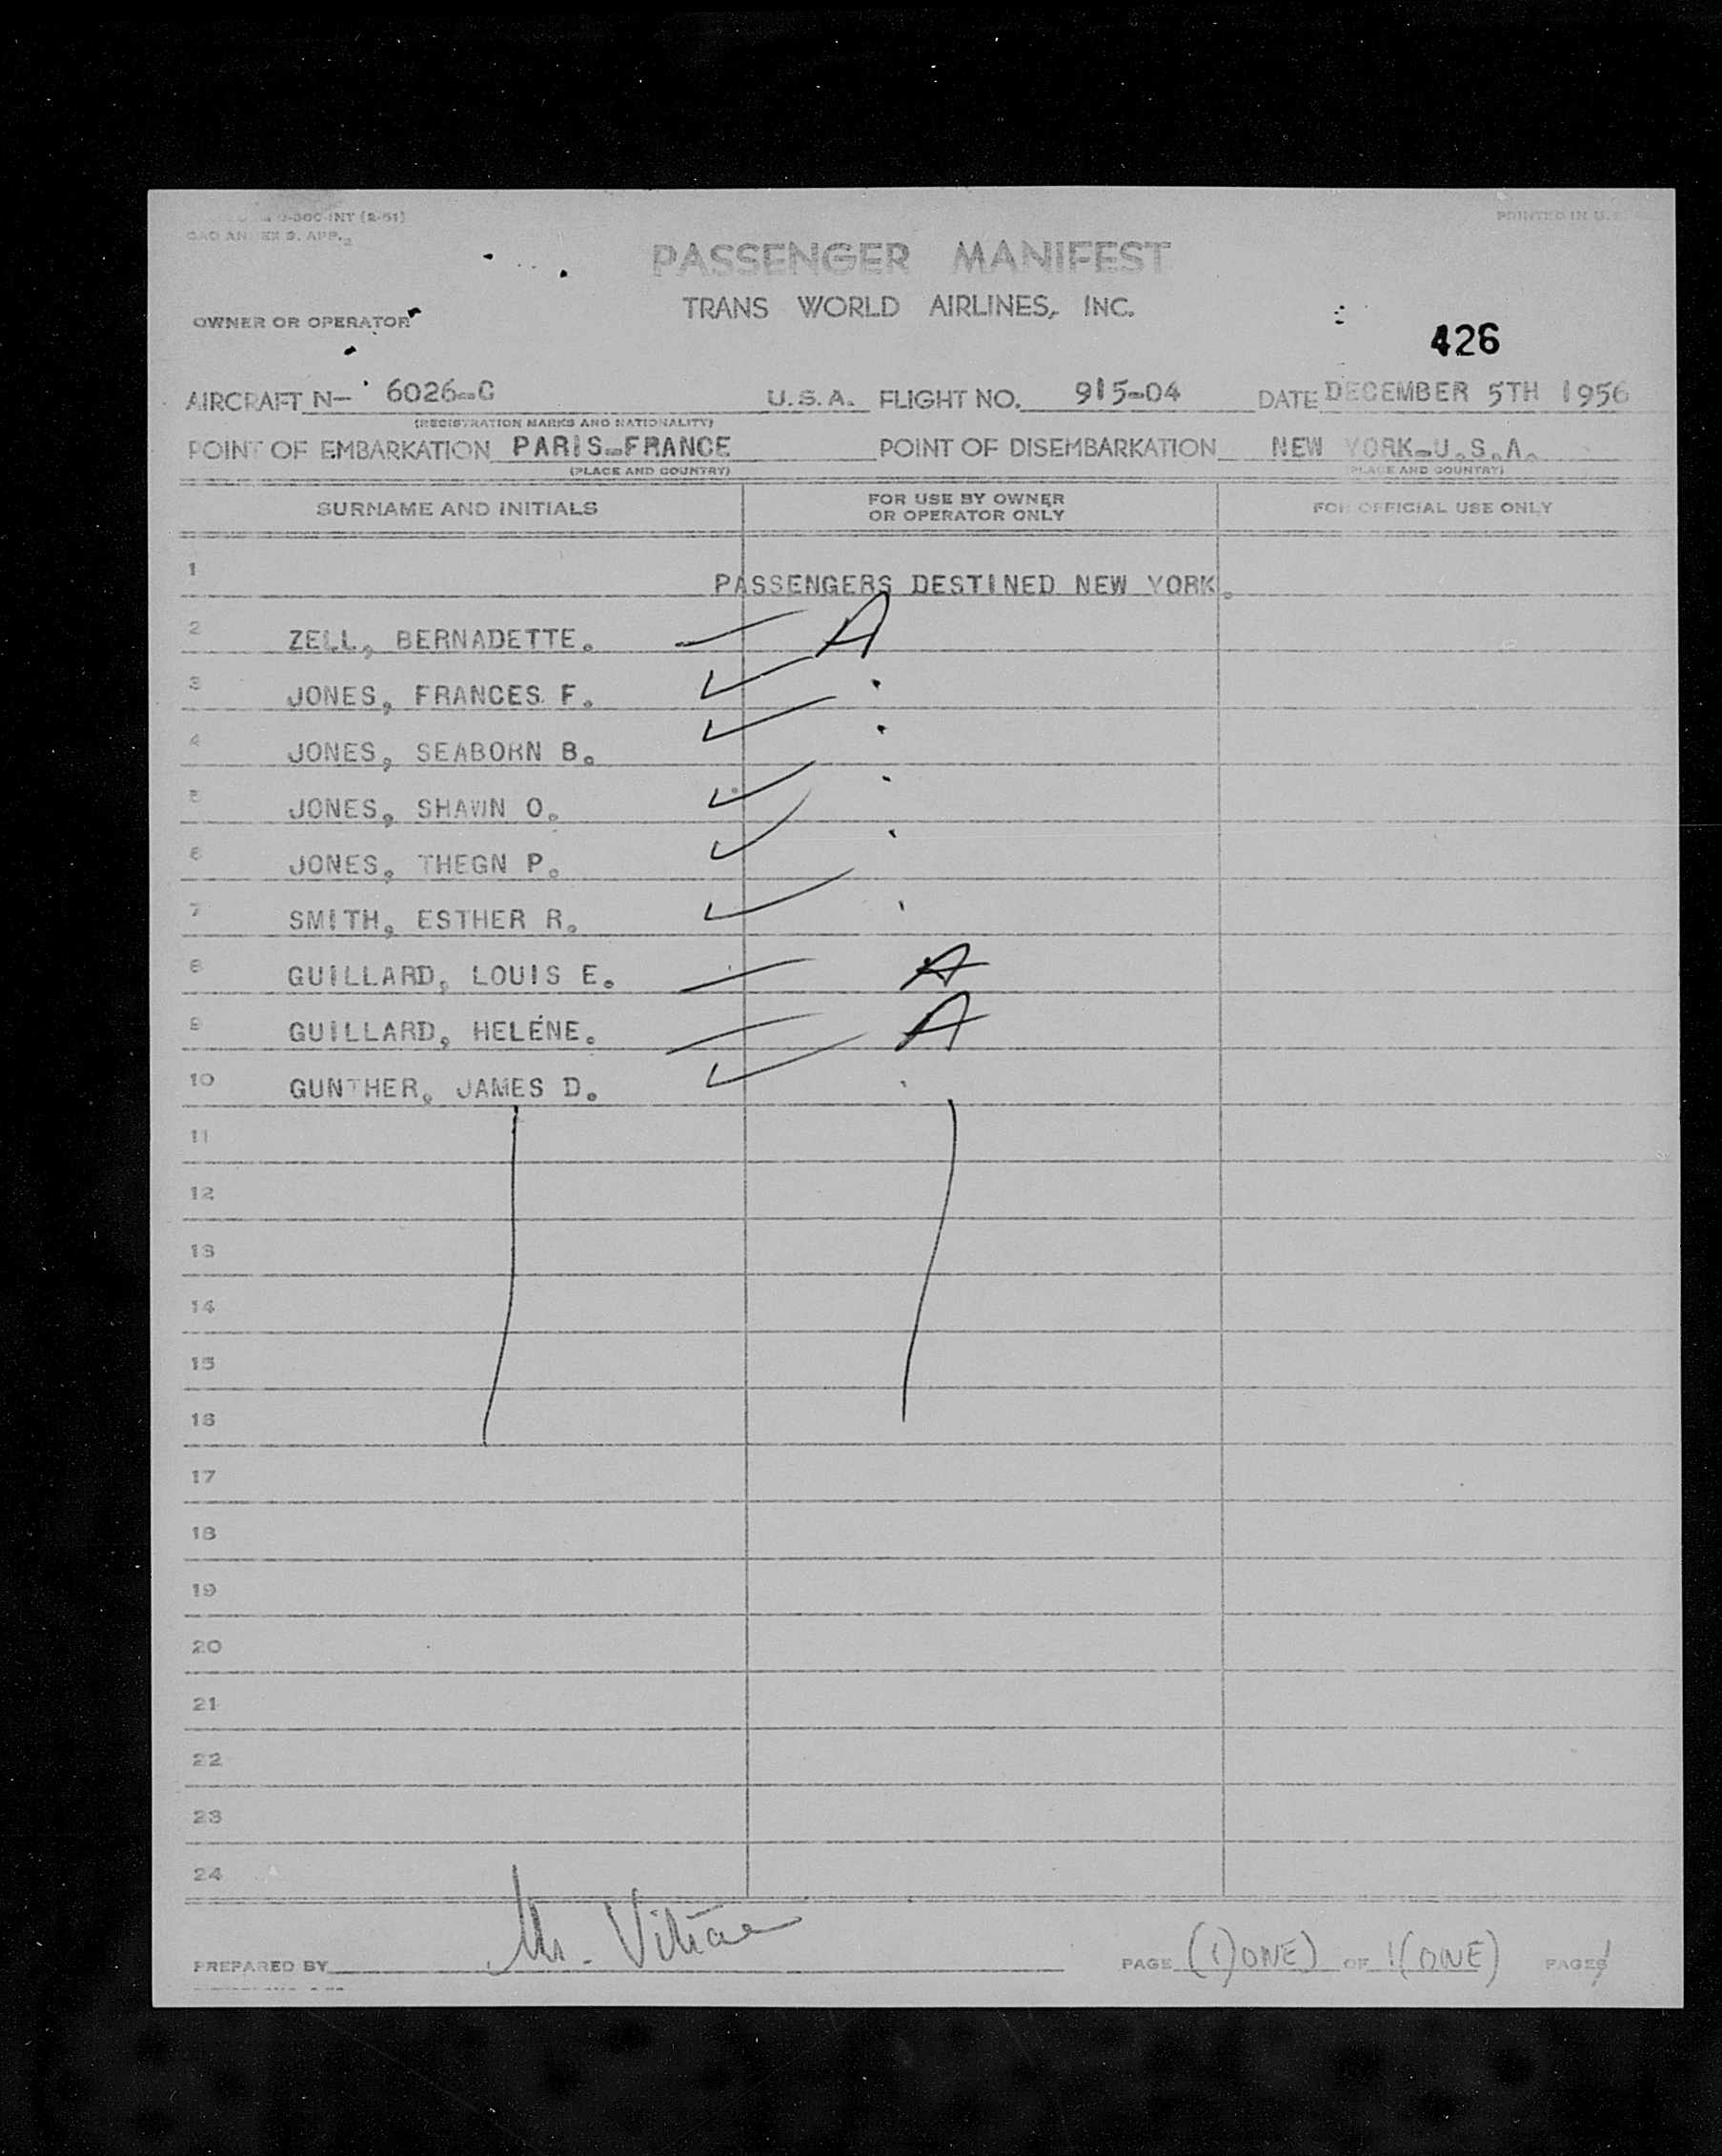 0-300-INT (2-51)
PRINTED IN U.
PASSENGER MANIFEST
TRANS WORLD AIRLINES, INC.
OWNER OR OPERATOR
426
AIRCRAFT N- 6026-C U.S.A. FLIGHT NO. 915-04 DATE DECEMBER 5TH 1956
(REGISTRATION MARKS AND NATIONALITY)
POINT OF EMBARKATION PARIS-FRANCE POINT OF DISEMBARKATION NEW YORK-U.S.A.
(PLACE AND COUNTRY) (PLACE AND COUNTRY)
SURNAME AND INITIALS FOR USE BY OWNER OR OPERATOR ONLY FOR OFFICIAL USE ONLY
1 PASSENGERS DESTINED NEW YORK.
2 ZELL, BERNADETTE. A
3 JONES, FRANCES F.
4 JONES, SEABORN B.
5 JONES, SHAWN O.
6 JONES, THEGN P.
7 SMITH, ESTHER R.
8 GUILLARD, LOUIS E. A
9 GUILLARD, HELÉNE. A
10 GUNTHER, JAMES D.
11
12
13
14
15
16
17
18
19
20
21
22
23
24
PREPARED BY PAGE (1)ONE) OF 1(ONE) PAGES